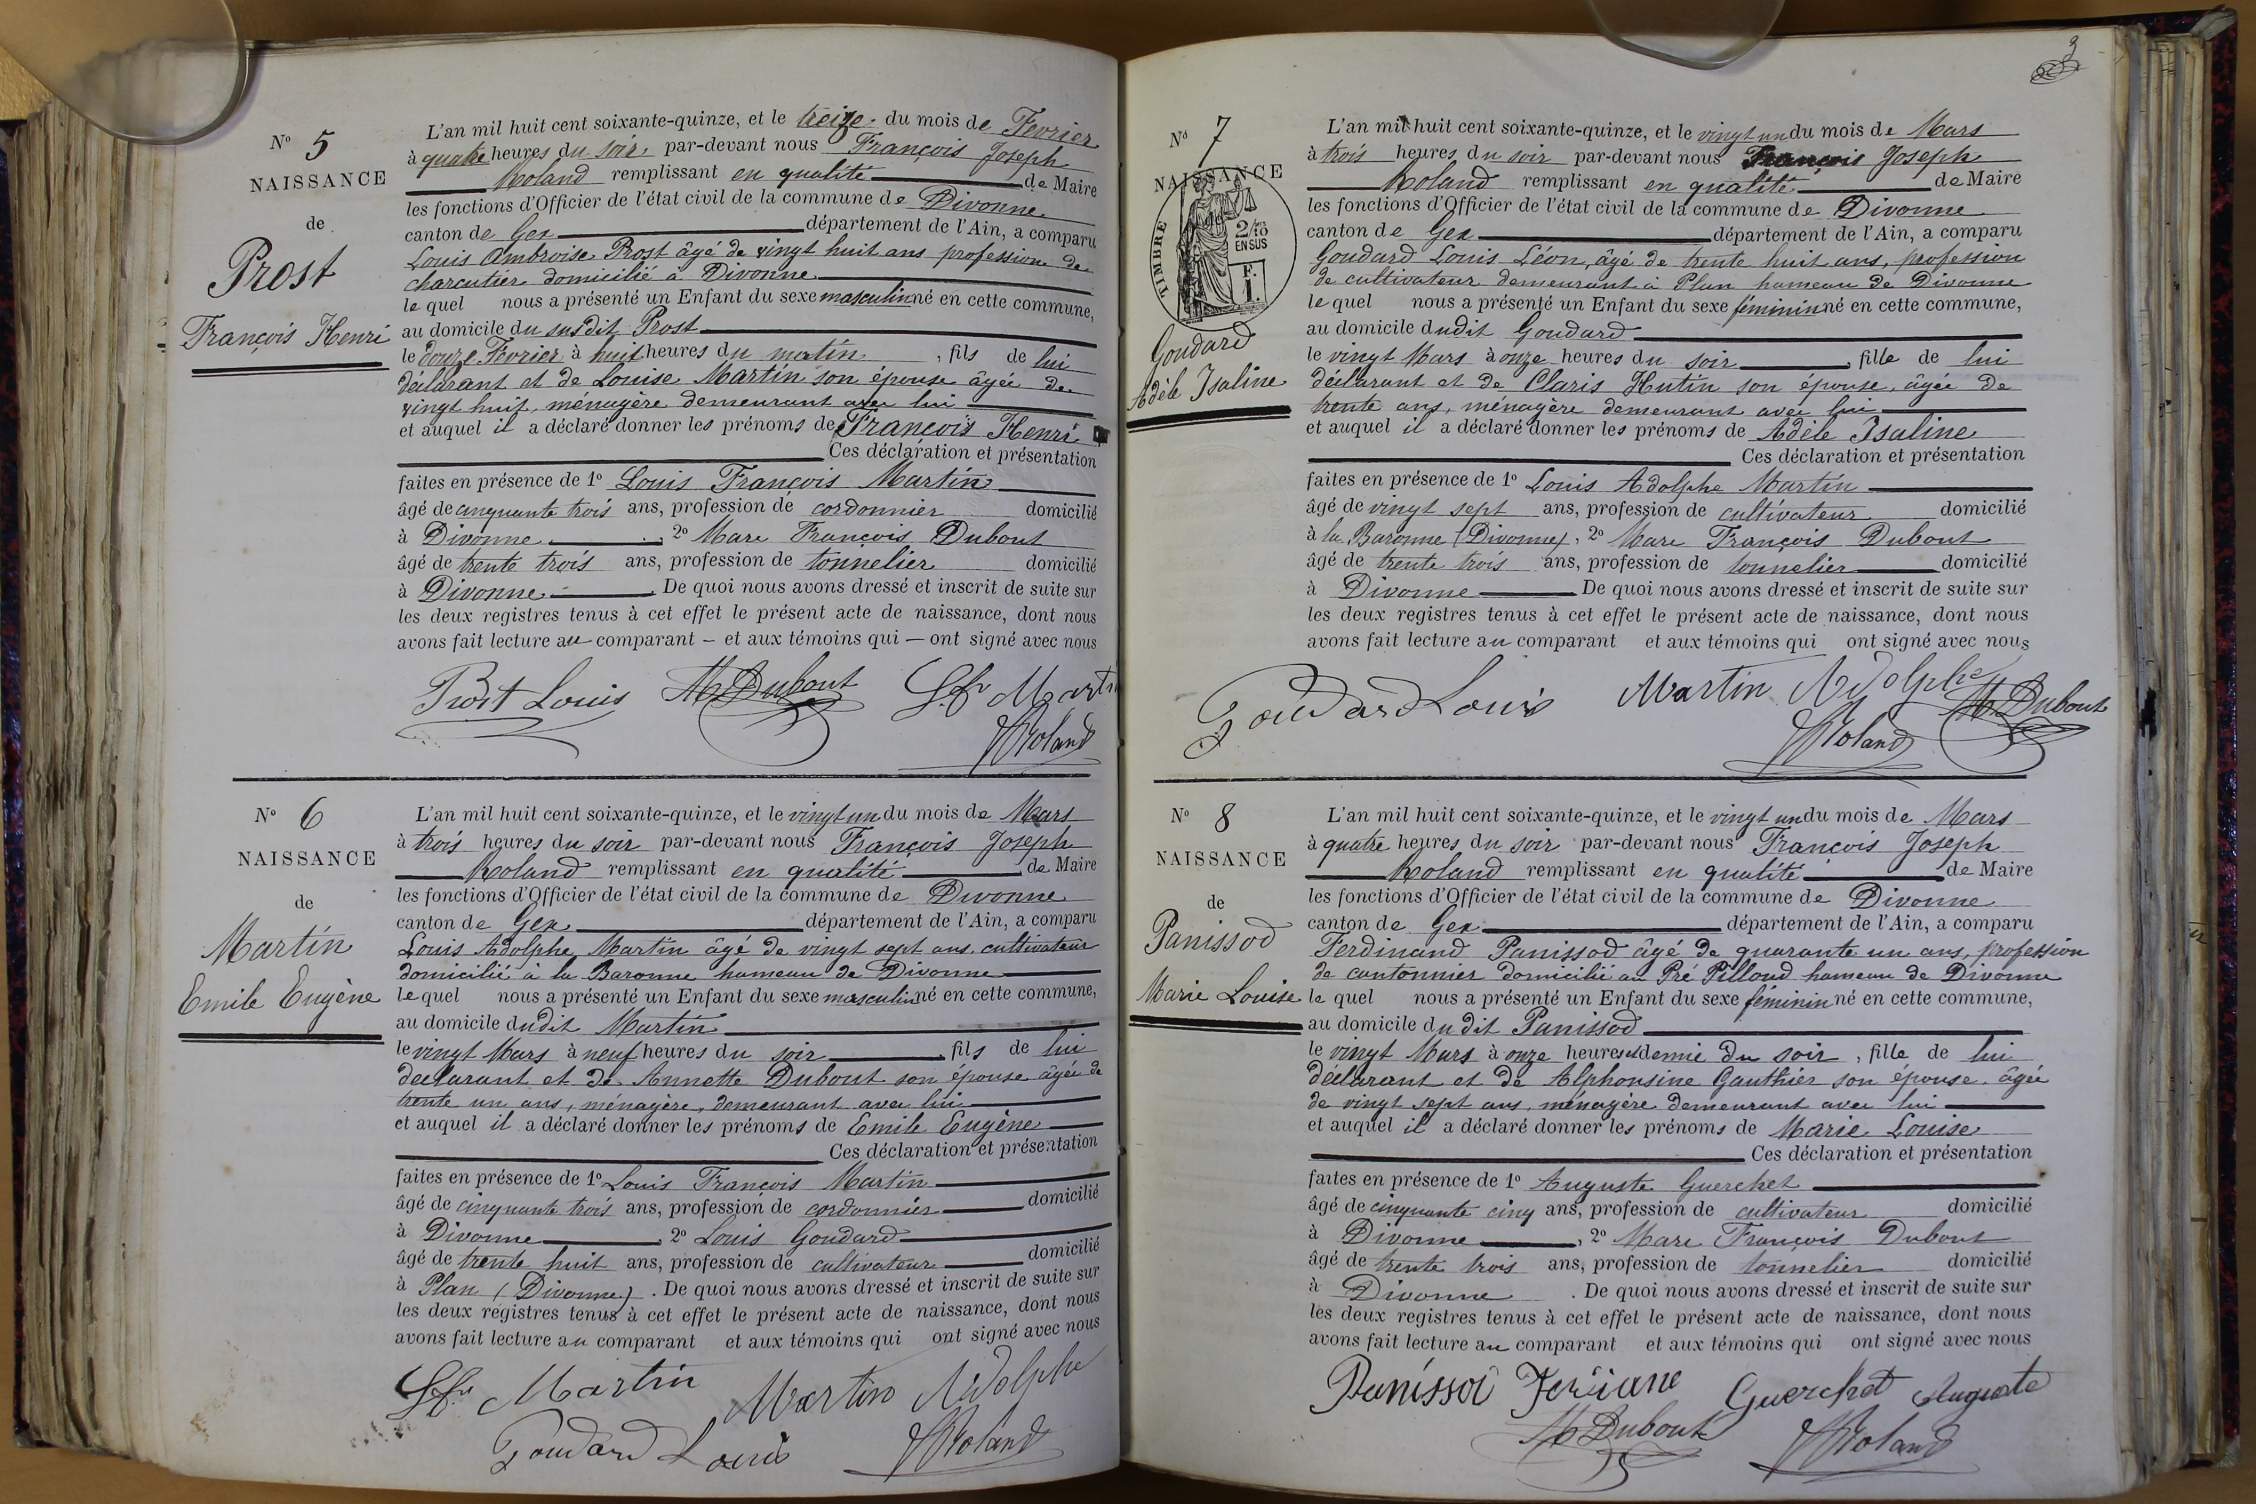 Nº 5
NAISSANCE
de
Prost
François Henri
L'an mil huit cent soixante-quinze, et le treize du mois de Fevrier
à quatre heures du soir par-devant nous François Joseph
Roland remplissant en qualité de Maire
les fonctions d'Officier de l'état civil de la commune de Divonne
canton de Gex département de l'Ain, a comparu
Louis Ambroise Prost âgé de vingt huit ans profession de
charcutier domicilié à Divonne
le quel nous a présenté un Enfant du sexe masculin né en cette commune,
au domicile du susdit Prost
le douze Fevrier à huit heures du matin, fils de lui
déclarant et de Louise Martin son épouse âgée de
vingt huit, ménagère demeurant avec lui
et auquel il a déclaré donner les prénoms de François Henri
Ces déclaration et présentation
faites en présence de 1º Louis François Martin
âgé de cinquante trois ans, profession de cordonnier domicilié
à Divonne, 2º Marc François Dubout
âgé de trente trois ans, profession de tonnelier domicilié
à Divonne. De quoi nous avons dressé et inscrit de suite sur
les deux registres tenus à cet effet le présent acte de naissance, dont nous
avons fait lecture au comparant — et aux témoins qui — ont signé avec nous
Prost Louis MDubout Lfs Martin
JRoland
Nº 6
NAISSANCE
de
Martin
Emile Eugène
L'an mil huit cent soixante-quinze, et le vingt un du mois de Mars
à trois heures du soir par-devant nous François Joseph
Roland remplissant en qualité de Maire
les fonctions d'Officier de l'état civil de la commune de Divonne
canton de Gex département de l'Ain, a comparu
Louis Adolphe Martin âgé de vingt sept ans, cultivateur
domicilié à la Baronne hameau de Divonne
le quel nous a présenté un Enfant du sexe masculin né en cette commune,
au domicile dudit Martin
le vingt Mars à neuf heures du soir, fils de lui
declarant et de Annette Dubout son épouse âgée de
trente un ans, ménagère, demeurant avec lui
et auquel il a déclaré donner les prénoms de Emile Eugène
Ces déclaration et présentation
faites en présence de 1º Louis François Martin
âgé de cinquante trois ans, profession de cordonnier domicilié
à Divonne, 2º Louis Goudard
âgé de trente huit ans, profession de cultivateur domicilié
à Plan (Divonne). De quoi nous avons dressé et inscrit de suite sur
les deux registres tenus à cet effet le présent acte de naissance, dont nous
avons fait lecture au comparant et aux témoins qui ont signé avec nous
Lfs Martin Martin Adolphe
Goudard Louis JRoland
3
Nº 7
NAISSANCE
de
TIMBRE
2/10
EN SUS
F.
1.
Goudard
Adèle Isaline
L'an mil huit cent soixante-quinze, et le vingt un du mois de Mars
à trois heures du soir par-devant nous François Joseph
Roland remplissant en qualité de Maire
les fonctions d'Officier de l'état civil de la commune de Divonne
canton de Gex département de l'Ain, a comparu
Goudard Louis Léon, âgé de trente huit ans, profession
de cultivateur demeurant à Plan hameau de Divonne
le quel nous a présenté un Enfant du sexe féminin né en cette commune,
au domicile dudit Goudard
le vingt Mars à onze heures du soir, fille de lui
déclarant et de Claris Hutin son épouse, âgée de
trente ans, ménagère demeurant avec lui
et auquel il a déclaré donner les prénoms de Adèle Isaline
Ces déclaration et présentation
faites en présence de 1º Louis Adolphe Martin
âgé de vingt sept ans, profession de cultivateur domicilié
à la Baronne (Divonne), 2º Marc François Dubout
âgé de trente trois ans, profession de tonnelier domicilié
à Divonne De quoi nous avons dressé et inscrit de suite sur
les deux registres tenus à cet effet le présent acte de naissance, dont nous
avons fait lecture au comparant et aux témoins qui ont signé avec nous
Goudard Louis Martin Adolphe MDubout
JRoland
Nº 8
NAISSANCE
de
Panissod
Marie Louise
L'an mil huit cent soixante-quinze, et le vingt un du mois de Mars
à quatre heures du soir par-devant nous François Joseph
Roland remplissant en qualité de Maire
les fonctions d'Officier de l'état civil de la commune de Divonne
canton de Gex département de l'Ain, a comparu
Ferdinand Panissod âgé de quarante un ans, profession
de cantonnier domicilié au Pré Pilloud hameau de Divonne
le quel nous a présenté un Enfant du sexe féminin né en cette commune,
au domicile du dit Panissod
le vingt Mars à onze heures et demie du soir, fille de lui
déclarant et de Alphonsine Gauthier son épouse âgée
de vingt sept ans, ménagère demeurant avec lui
et auquel il a déclaré donner les prénoms de Marie Louise
Ces déclaration et présentation
faites en présence de 1º Auguste Guerchet
âgé de cinquante cinq ans, profession de cultivateur domicilié
à Divonne, 2º Marc François Dubout
âgé de trente trois ans, profession de tonnelier domicilié
à Divonne. De quoi nous avons dressé et inscrit de suite sur
les deux registres tenus à cet effet le présent acte de naissance, dont nous
avons fait lecture au comparant et aux témoins qui ont signé avec nous
Panissod Guerchet Auguste
MDubout JRoland